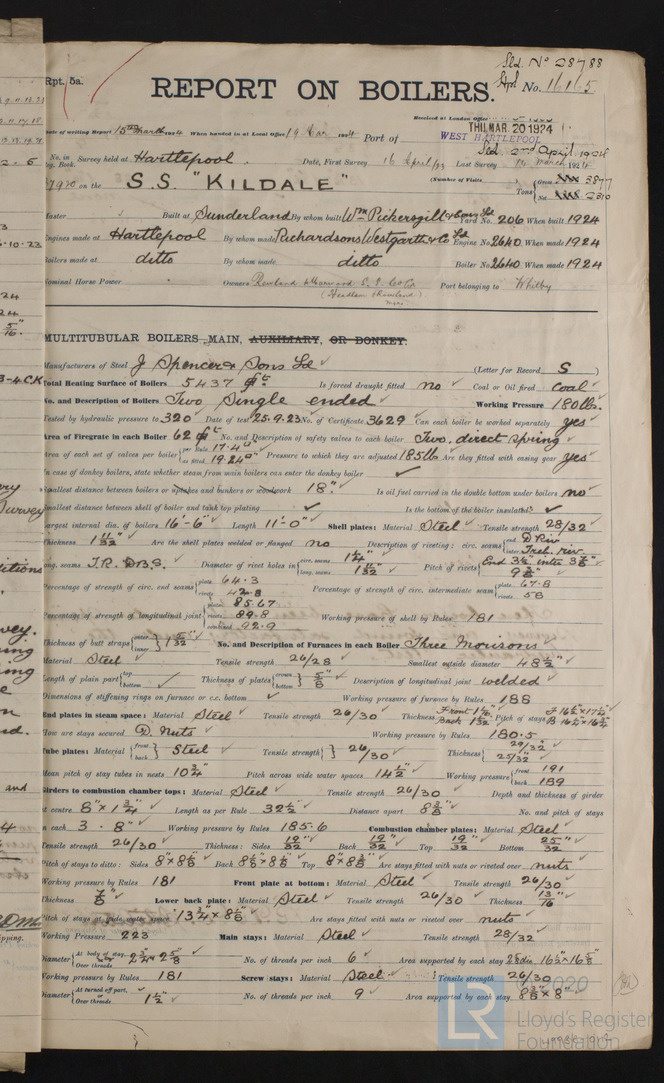 Sld. No 28788
Rpt. 5a.
Hpl No. 16165
REPORT ON BOILERS.
Received at London Office
Date of writing Report 15th March 1924 When handed in at Local Office 19 Mar 1924 Port of WEST HARTLEPOOL
THU. MAR. 20 1924
Sld 2nd April 1924
No. in Reg. Book. Survey held at Hartlepool. Date, First Survey 16 April/23 Last Survey 14 March 1924
on the S.S. "KILDALE" (Number of Visits) Tons { Gross 3877 Net 2310
Master Built at Sunderland By whom built Wm Pickersgill & Sons Ld Yard No. 206 When built 1924
Engines made at Hartlepool By whom made Richardsons Westgarth & Co Ld Engine No. 2640 When made 1924
Boilers made at ditto By whom made ditto Boiler No. 2640 When made 1924
Nominal Horse Power Owners Rowland & Harwood S. S. Co Ld Port belonging to Whitby
(Headlam & Rowland) Mgrs
MULTITUBULAR BOILERS—MAIN, AUXILIARY, OR DONKEY.
Manufacturers of Steel J Spencer & Sons Ld (Letter for Record S)
Total Heating Surface of Boilers 5437 ft² Is forced draught fitted no Coal or Oil fired coal
No. and Description of Boilers Two Single ended Working Pressure 180 lbs.
Tested by hydraulic pressure to 320 Date of test 25.9.23 No. of Certificate 3629 Can each boiler be worked separately yes
Area of Firegrate in each Boiler 62 ft² No. and Description of safety valves to each boiler Two, direct spring
Area of each set of valves per boiler { per Rule 17.4 as fitted 19.24 Pressure to which they are adjusted 185 lb Are they fitted with easing gear yes
In case of donkey boilers, state whether steam from main boilers can enter the donkey boiler ✓
Smallest distance between boilers or uptakes and bunkers or woodwork 18". Is oil fuel carried in the double bottom under boilers no
Smallest distance between shell of boiler and tank top plating ✓ Is the bottom of the boiler insulated ✓
Largest internal dia. of boilers 16'-6" Length 11'-0" Shell plates: Material Steel Tensile strength 28/32
Thickness 1 11/32 Are the shell plates welded or flanged no Description of riveting: circ. seams { end D Riv inter. Treb. riv.
long. seams T.R. D.B.S. Diameter of rivet holes in { circ. seams 1 1/4" long. seams 1 11/32 Pitch of rivets { End 3 1/2" inter 3 7/8" 9 3/8"
Percentage of strength of circ. end seams { plate 64.3 rivets 42.8 Percentage of strength of circ. intermediate seam { plate 67.8 rivets 58
Percentage of strength of longitudinal joint { plate 85.67 rivets 89.8 combined 92.9 Working pressure of shell by Rules 181
Thickness of butt straps { outer inner } 1 5/32" No. and Description of Furnaces in each Boiler Three Morisons
Material Steel Tensile strength 26/28 Smallest outside diameter 48 1/2"
Length of plain part { top bottom ✓ Thickness of plates { crown bottom } 5/8" Description of longitudinal joint welded
Dimensions of stiffening rings on furnace or c.c. bottom ✓ Working pressure of furnace by Rules 188
End plates in steam space: Material Steel Tensile strength 26/30 Thickness Pitch of stays
How are stays secured D. nuts Working pressure by Rules 180.5
Tube plates: Material { front back } Steel Tensile strength { 26/30 Thickness { 29/32" 25/32"
Mean pitch of stay tubes in nests 10 3/4" Pitch across wide water spaces 14 1/2" Working pressure { front 191 back 189
Girders to combustion chamber tops: Material Steel Tensile strength 26/30 Depth and thickness of girder
at centre 8" × 1 3/4" Length as per Rule 32 1/2" Distance apart 8 3/8" No. and pitch of stays
in each 3 - 8" Working pressure by Rules 185.6 Combustion chamber plates: Material Steel
Tensile strength 26/30 Thickness: Sides 19/32" Back 19/32" Top 19/32" Bottom 25/32"
Pitch of stays to ditto: Sides 8" × 8 3/8" Back 8 3/8" × 8 3/8" Top 8" × 8 3/8" Are stays fitted with nuts or riveted over nuts
Working pressure by Rules 181 Front plate at bottom: Material Steel Tensile strength 26/30
Thickness 7/8" Lower back plate: Material Steel Tensile strength 26/30 Thickness 13/16"
Pitch of stays at wide water space 13 3/4" × 8 3/8" Are stays fitted with nuts or riveted over nuts
Working Pressure 223 Main stays: Material Steel Tensile strength 28/32
Diameter { At body of stay, or Over threads 2 3/4" & 2 5/8" No. of threads per inch 6 Area supported by each stay
Working pressure by Rules 181 Screw stays: Material Steel Tensile strength 26/30
Diameter { At turned off part, or Over threads 1 1/2" No. of threads per inch 9 Area supported by each stay 8 3/8" × 8"
© 2020
LR
Lloyd's Register
Foundation